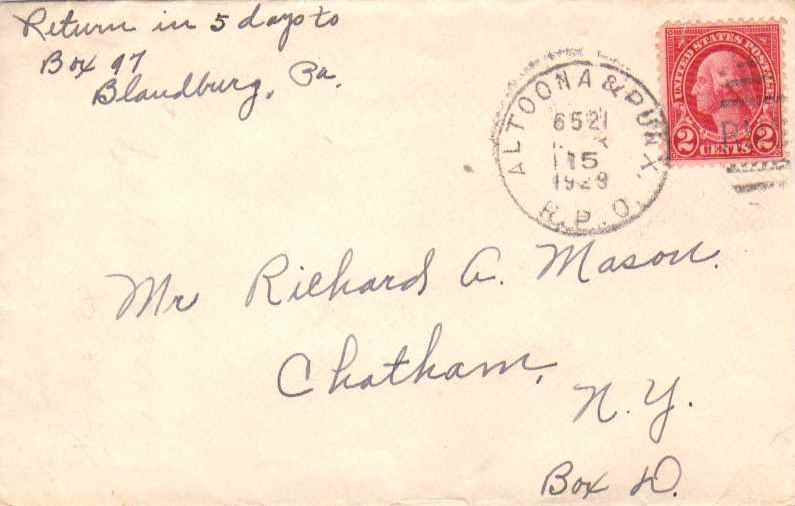 Return in 5 days to
Box 97
Blandburg, Pa.
ALTOONA & PUNX.
6521
15
1928
R.P.O.
UNITED STATES POSTAGE
2 CENTS 2
Mr Richard A. Mason.
Chatham,
N.Y.
Box D.